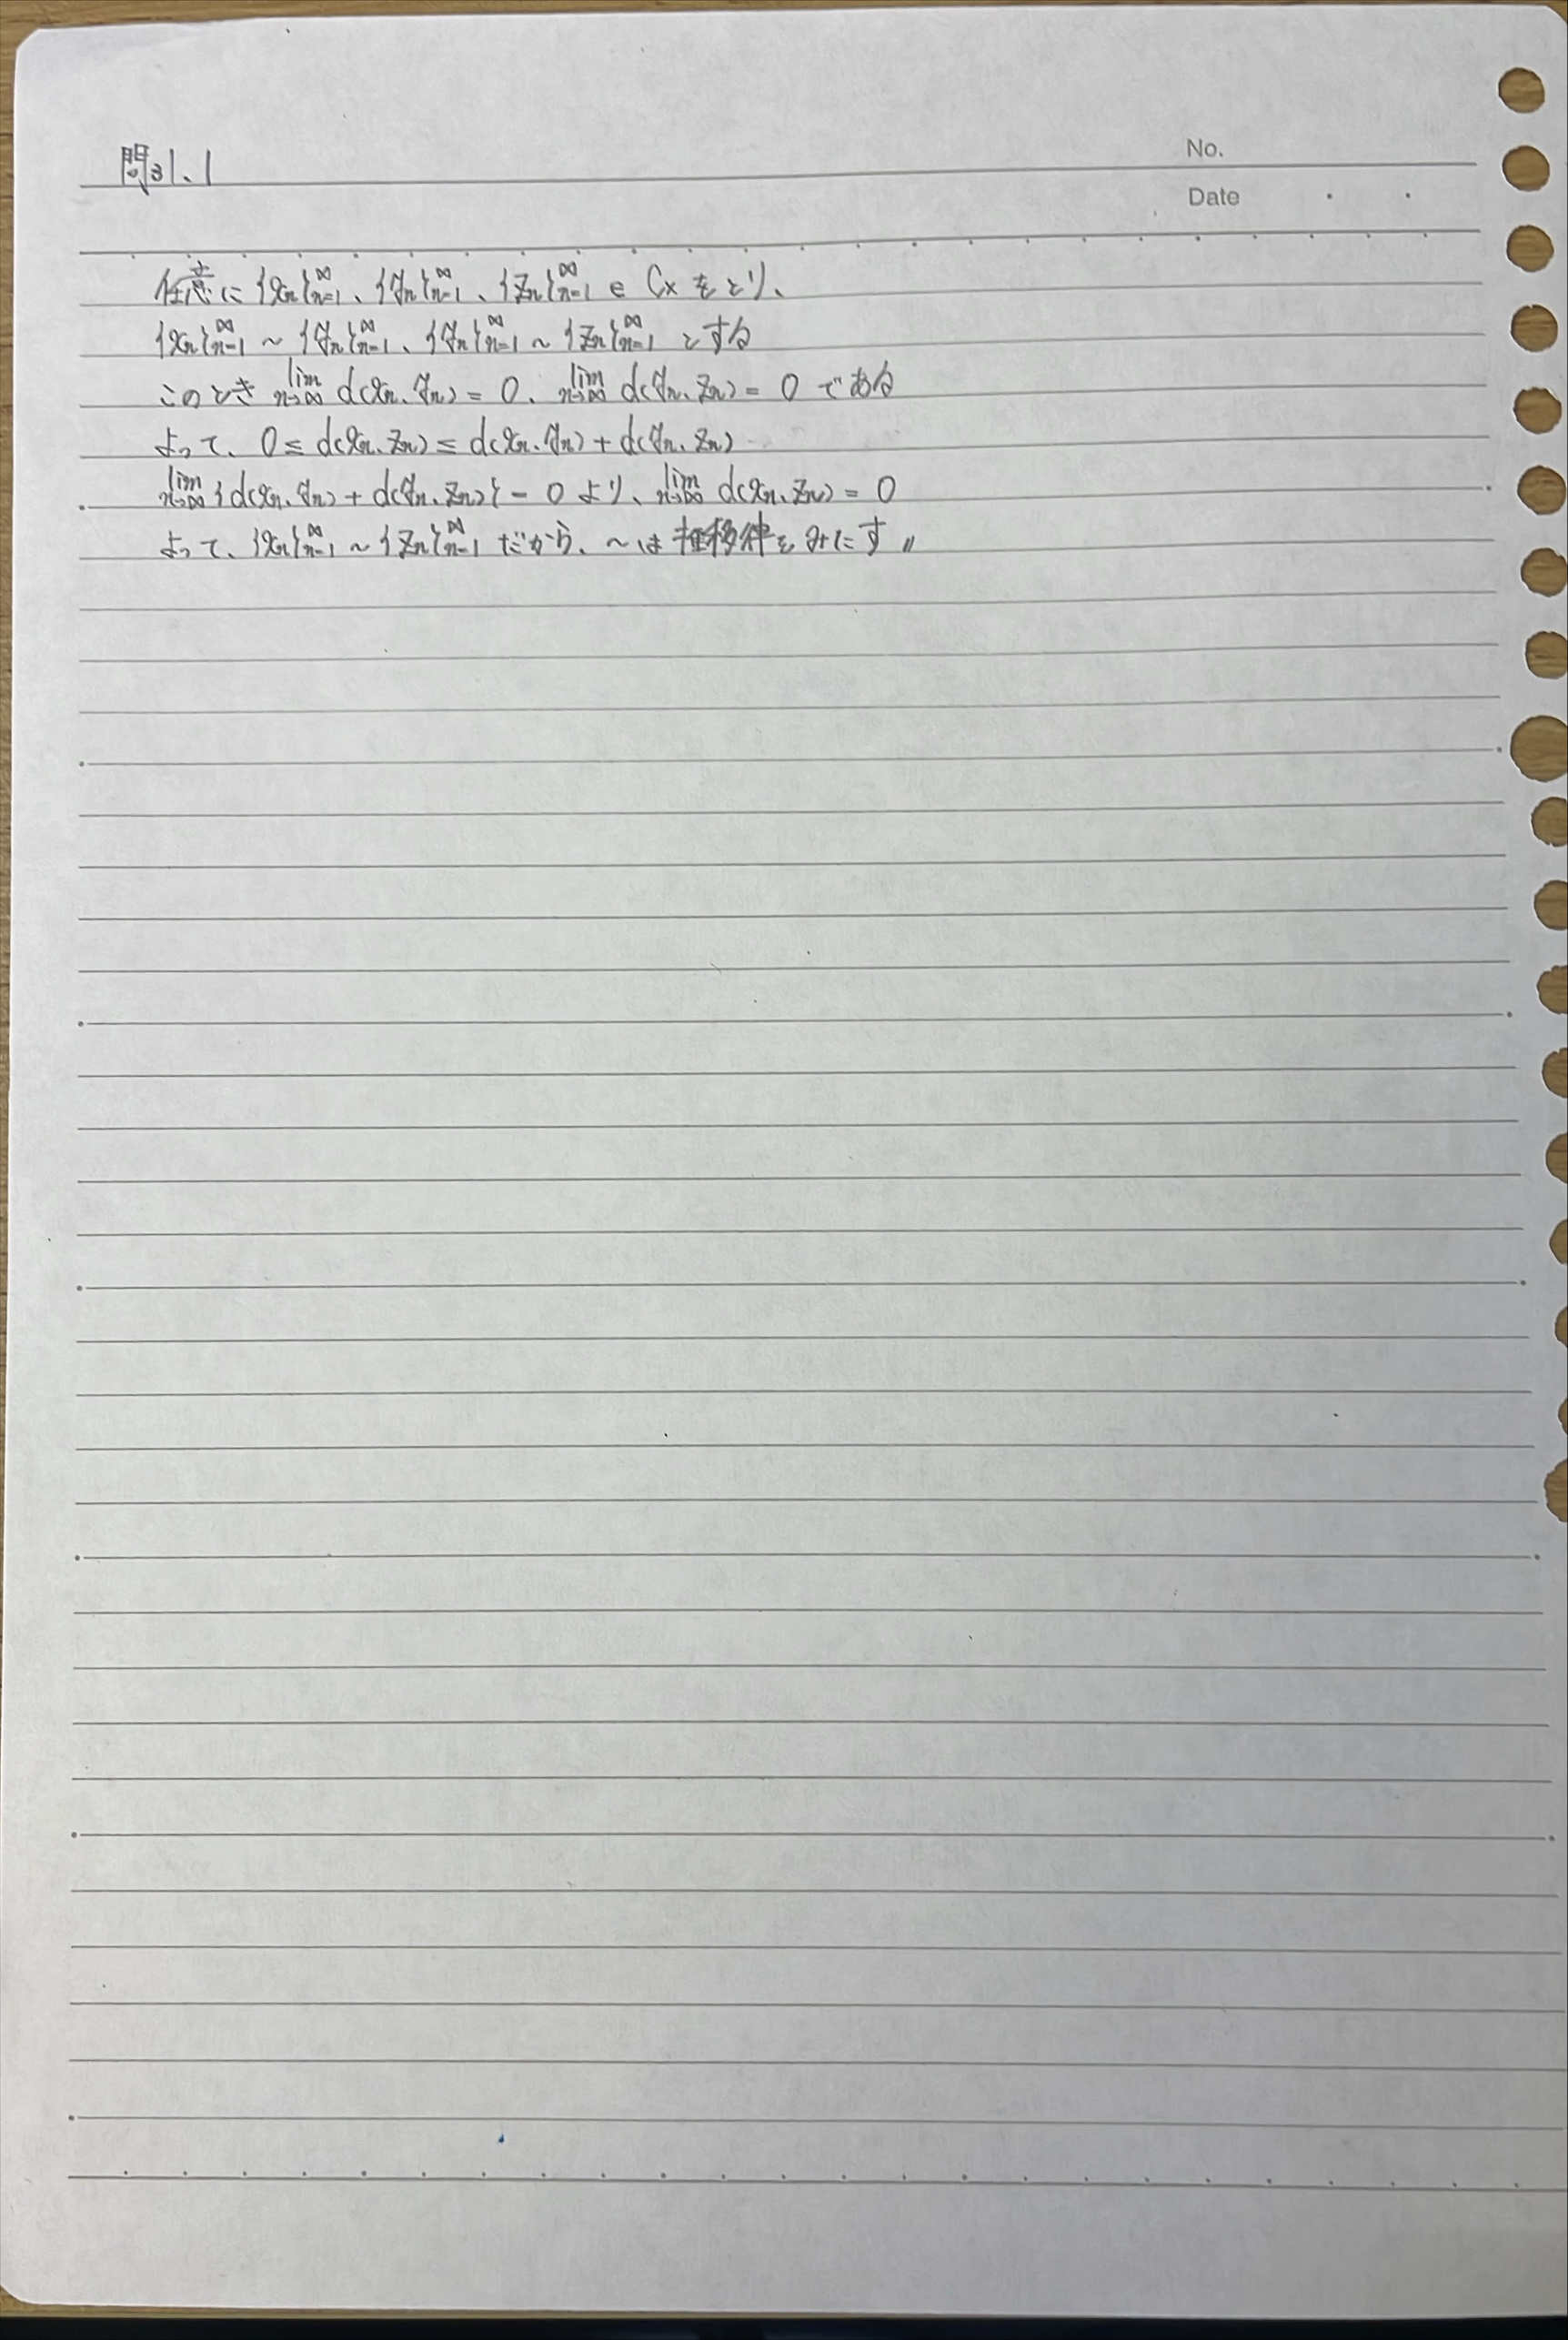 問31.1
No.
Date
任意に {xn}n=1^∞、{yn}n=1^∞、{zn}n=1^∞ ∈ Cx をとり、
{xn}n=1^∞ ~ {yn}n=1^∞、{yn}n=1^∞ ~ {zn}n=1^∞ とする
このとき lim n→∞ d(xn, yn) = 0、lim n→∞ d(yn, zn) = 0 である
よって、0 ≤ d(xn, zn) ≤ d(xn, yn) + d(yn, zn)
lim n→∞ {d(xn, yn) + d(yn, zn)} = 0 より、lim n→∞ d(xn, zn) = 0
よって、{xn}n=1^∞ ~ {zn}n=1^∞ だから、~は推移律をみたす〃